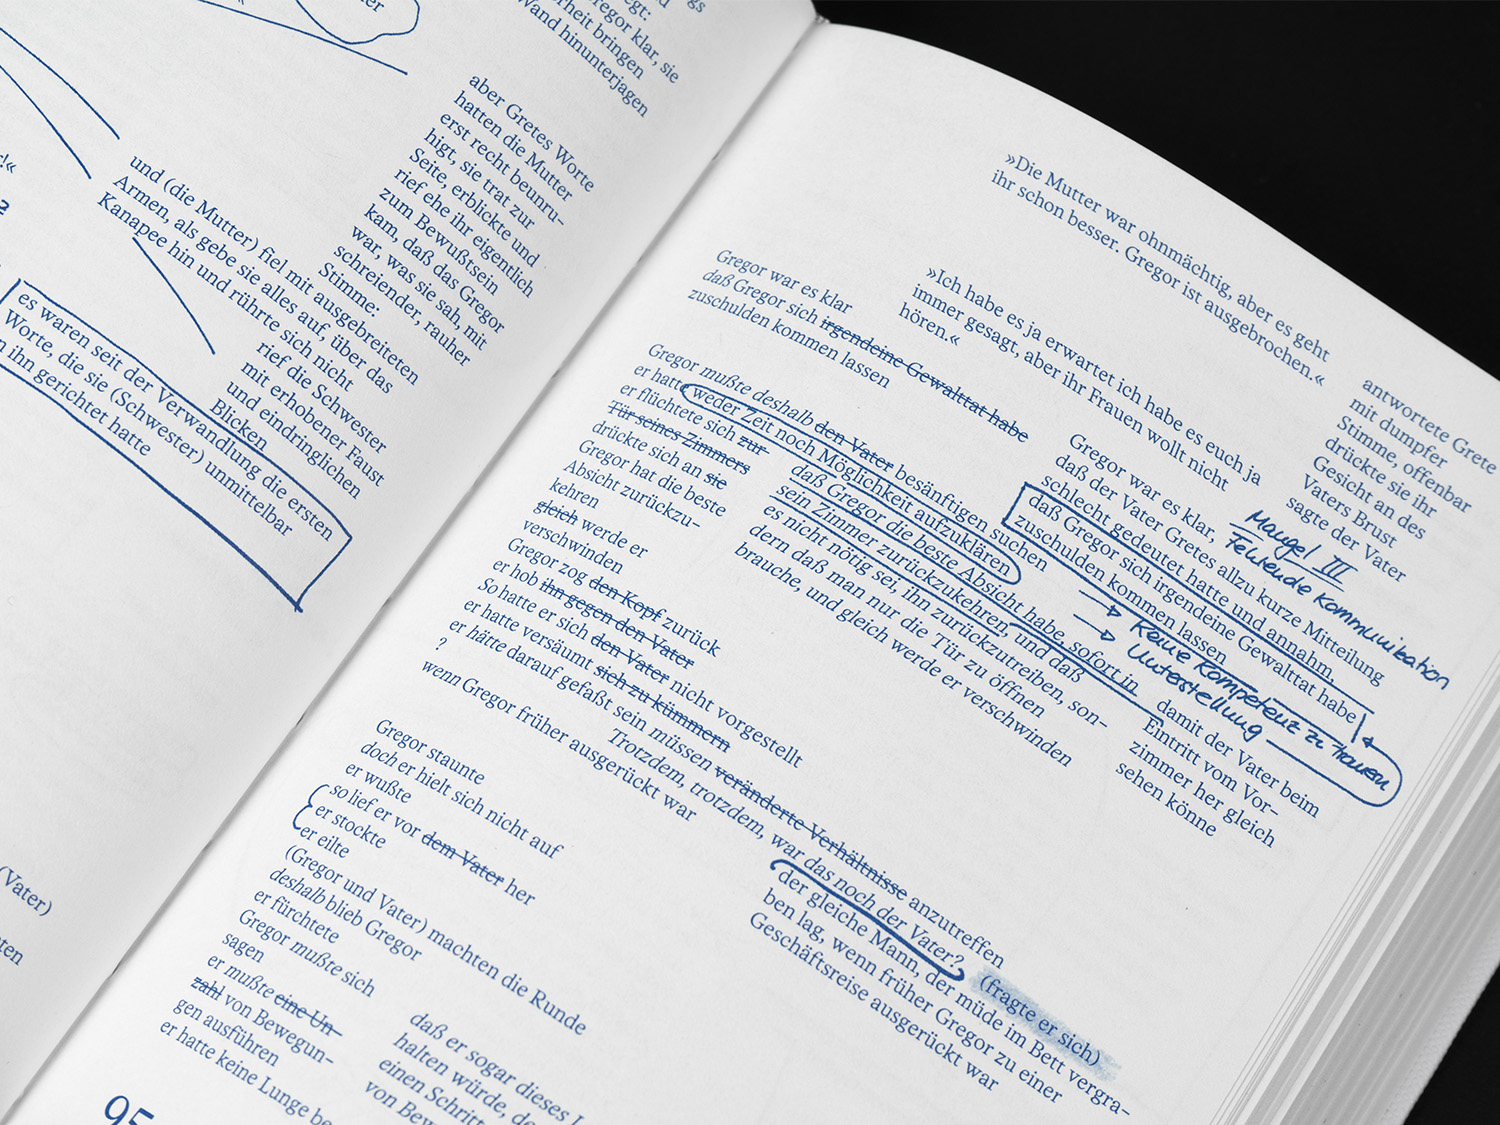 er
gs
egt:
Gregor klar, sie
rheit bringen
Wand hinunterjagen
aber Gretes Worte
hatten die Mutter
erst recht beunru–
higt, sie trat zur
Seite, erblickte und
rief ehe ihr eigentlich
zum Bewußtsein
kam, daß das Gregor
war, was sie sah, mit
schreiender, rauher
Stimme:
!«
und (die Mutter) fiel mit ausgebreiteten
Armen, als gebe sie alles auf, über das
Kanapee hin und rührte sich nicht
rief die Schwester
mit erhobener Faust
und eindringlichen
Blicken
es waren seit der Verwandlung die ersten
Worte, die sie (Schwester) unmittelbar
n ihn gerichtet hatte
(Vater)
ten
»Die Mutter war ohnmächtig, aber es geht
ihr schon besser. Gregor ist ausgebrochen.«
»Ich habe es ja erwartet ich habe es euch ja
immer gesagt, aber ihr Frauen wollt nicht
hören.«
antwortete Grete
mit dumpfer
Stimme, offenbar
drückte sie ihr
Gesicht an des
Vaters Brust
sagte der Vater
Gregor war es klar
daß Gregor sich irgendeine Gewalttat habe
zuschulden kommen lassen
Gregor war es klar,
daß der Vater Gretes allzu kurze Mitteilung
schlecht gedeutet hatte und annahm,
daß Gregor sich irgendeine Gewalttat habe
zuschulden kommen lassen
Mangel III
Fehlende Kommunikation
→ Keine Kompetenz zu trauen
→ Unterstellung
Gregor mußte deshalb den Vater besänftigen suchen
er hatte weder Zeit noch Möglichkeit aufzuklären
er flüchtete sich zur
Tür seines Zimmers
drückte sich an sie
Gregor hat die beste
Absicht zurückzu–
kehren
gleich werde er
verschwinden
daß Gregor die beste Absicht habe, sofort in
sein Zimmer zurückzukehren, und daß
es nicht nötig sei, ihn zurückzutreiben, son–
dern daß man nur die Tür zu öffnen
brauche, und gleich werde er verschwinden
damit der Vater beim
Eintritt vom Vor–
zimmer her gleich
sehen könne
Gregor zog den Kopf zurück
er hob ihn gegen den Vater
So hatte er sich den Vater nicht vorgestellt
er hatte versäumt sich zu kümmern
er hätte darauf gefaßt sein müssen veränderte Verhältnisse anzutreffen
?
Trotzdem, trotzdem, war das noch der Vater?
(fragte er sich)
wenn Gregor früher ausgerückt war
der gleiche Mann, der müde im Bett vergra–
ben lag, wenn früher Gregor zu einer
Geschäftsreise ausgerückt war
Gregor staunte
doch er hielt sich nicht auf
er wußte
so lief er vor dem Vater her
er stockte
er eilte
(Gregor und Vater) machten die Runde
deshalb blieb Gregor
er fürchtete
Gregor mußte sich
sagen
er mußte eine Un–
zahl von Bewegun–
gen ausführen
er hatte keine Lunge be
daß er sogar dieses
halten würde, de
einen Schritt
von Bew
95